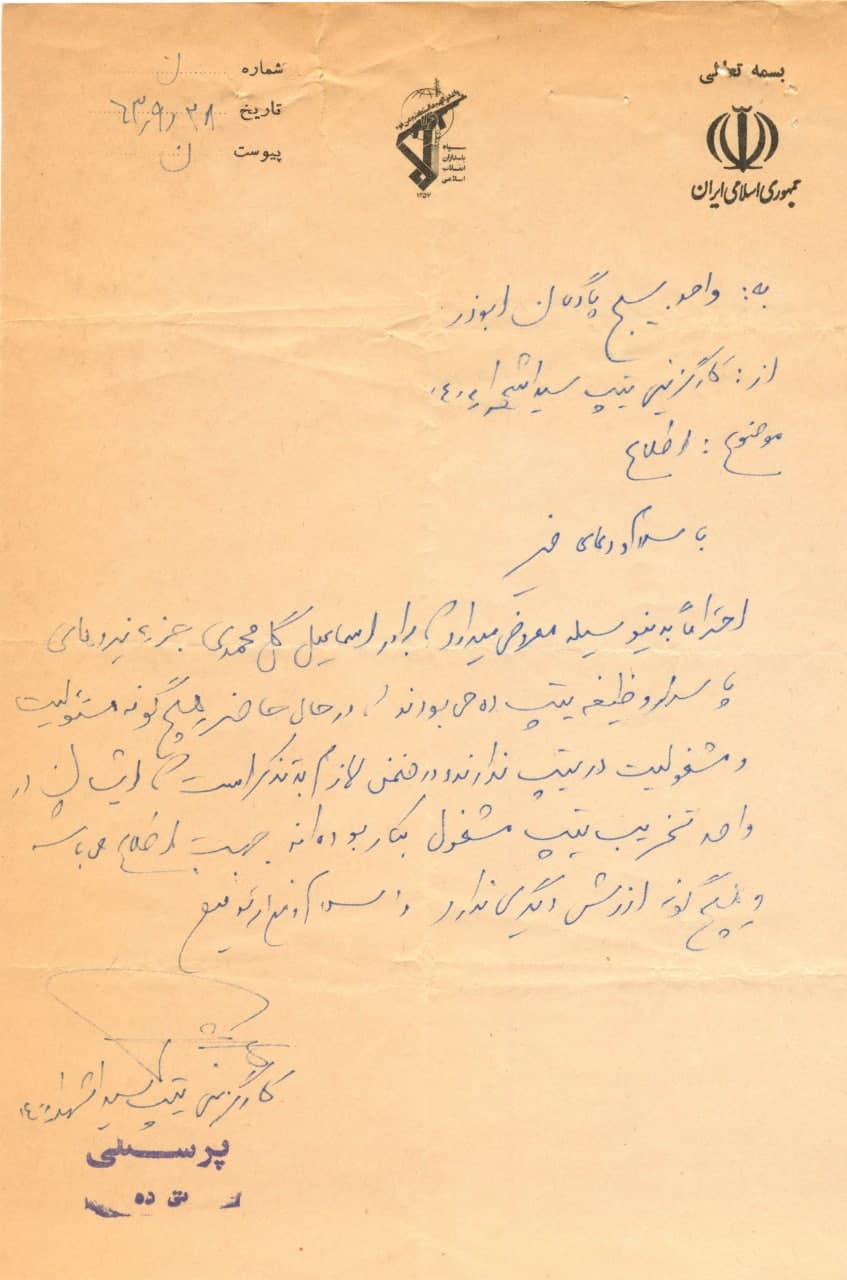 بسمه تعالی
جمهوری اسلامی ایران
سپاه
پاسداران
انقلاب
اسلامی
۱۳۵۷
شماره ن
تاریخ ۶۳٫۹٫۲۸
پیوست ن
به: واحد بسیج پادگان ابوذر
از: کارگزینی تیپ سیدالشهداء
موضوع: اطلاع
با سلام و دعای خیر
احتراماً بدینوسیله معروض میدارد برادر اسماعیل گل محمدی جزء نیروهای
پاسدار وظیفه تیپ ده می بودند که در حال حاضر هیچگونه مسئولیت
و مشغولیت در تیپ ندارند و در ضمن لازم به تذکر است که ایشان در
واحد تخریب تیپ مشغول بکار بوده اند جهت اطلاع می باشد
و هیچ گونه ارزش دیگری ندارد والسلام
کارگزینی تیپ سیدالشهداء
پرسنلی
ده